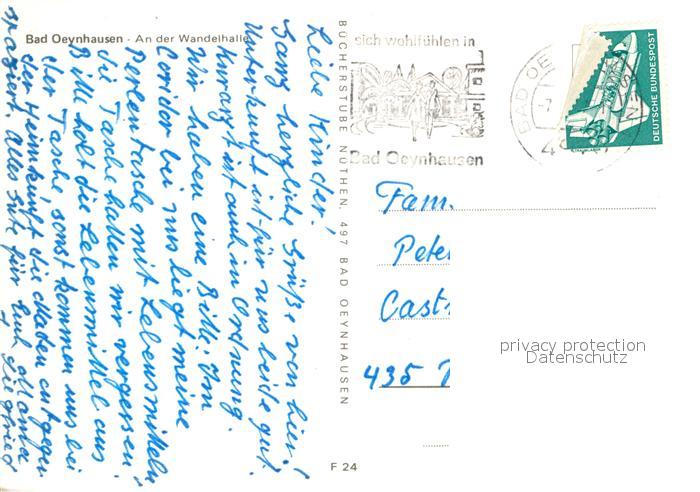 Bad Oeynhausen - An der Wandelhalle
Liebe Kinder!
Ganz herzliche Grüße von hier!
Unterkunft ist für uns beide gut.
Kurarzt ist auch in Ordnung.
Wir haben eine Bitte: Im
Corridor bei uns liegt meine
Perlentasche mit Lebensmitteln
die Tasche hatten wir vergessen.
Bitte holt die Lebensmittel aus
der Tasche, sonst kommen uns bei
der Heimkunft die Maden entgegen
spaziert. Alles Gute für Euch Mama
+ Siegfried
BÜCHERSTUBE NÜTHEN, 497 BAD OEYNHAUSEN
F 24
sich wohlfühlen in
Bad Oeynhausen
BAD OE
DEUTSCHE BUNDESPOST
Fam.
Pete
Cast
435
privacy protection
Datenschutz